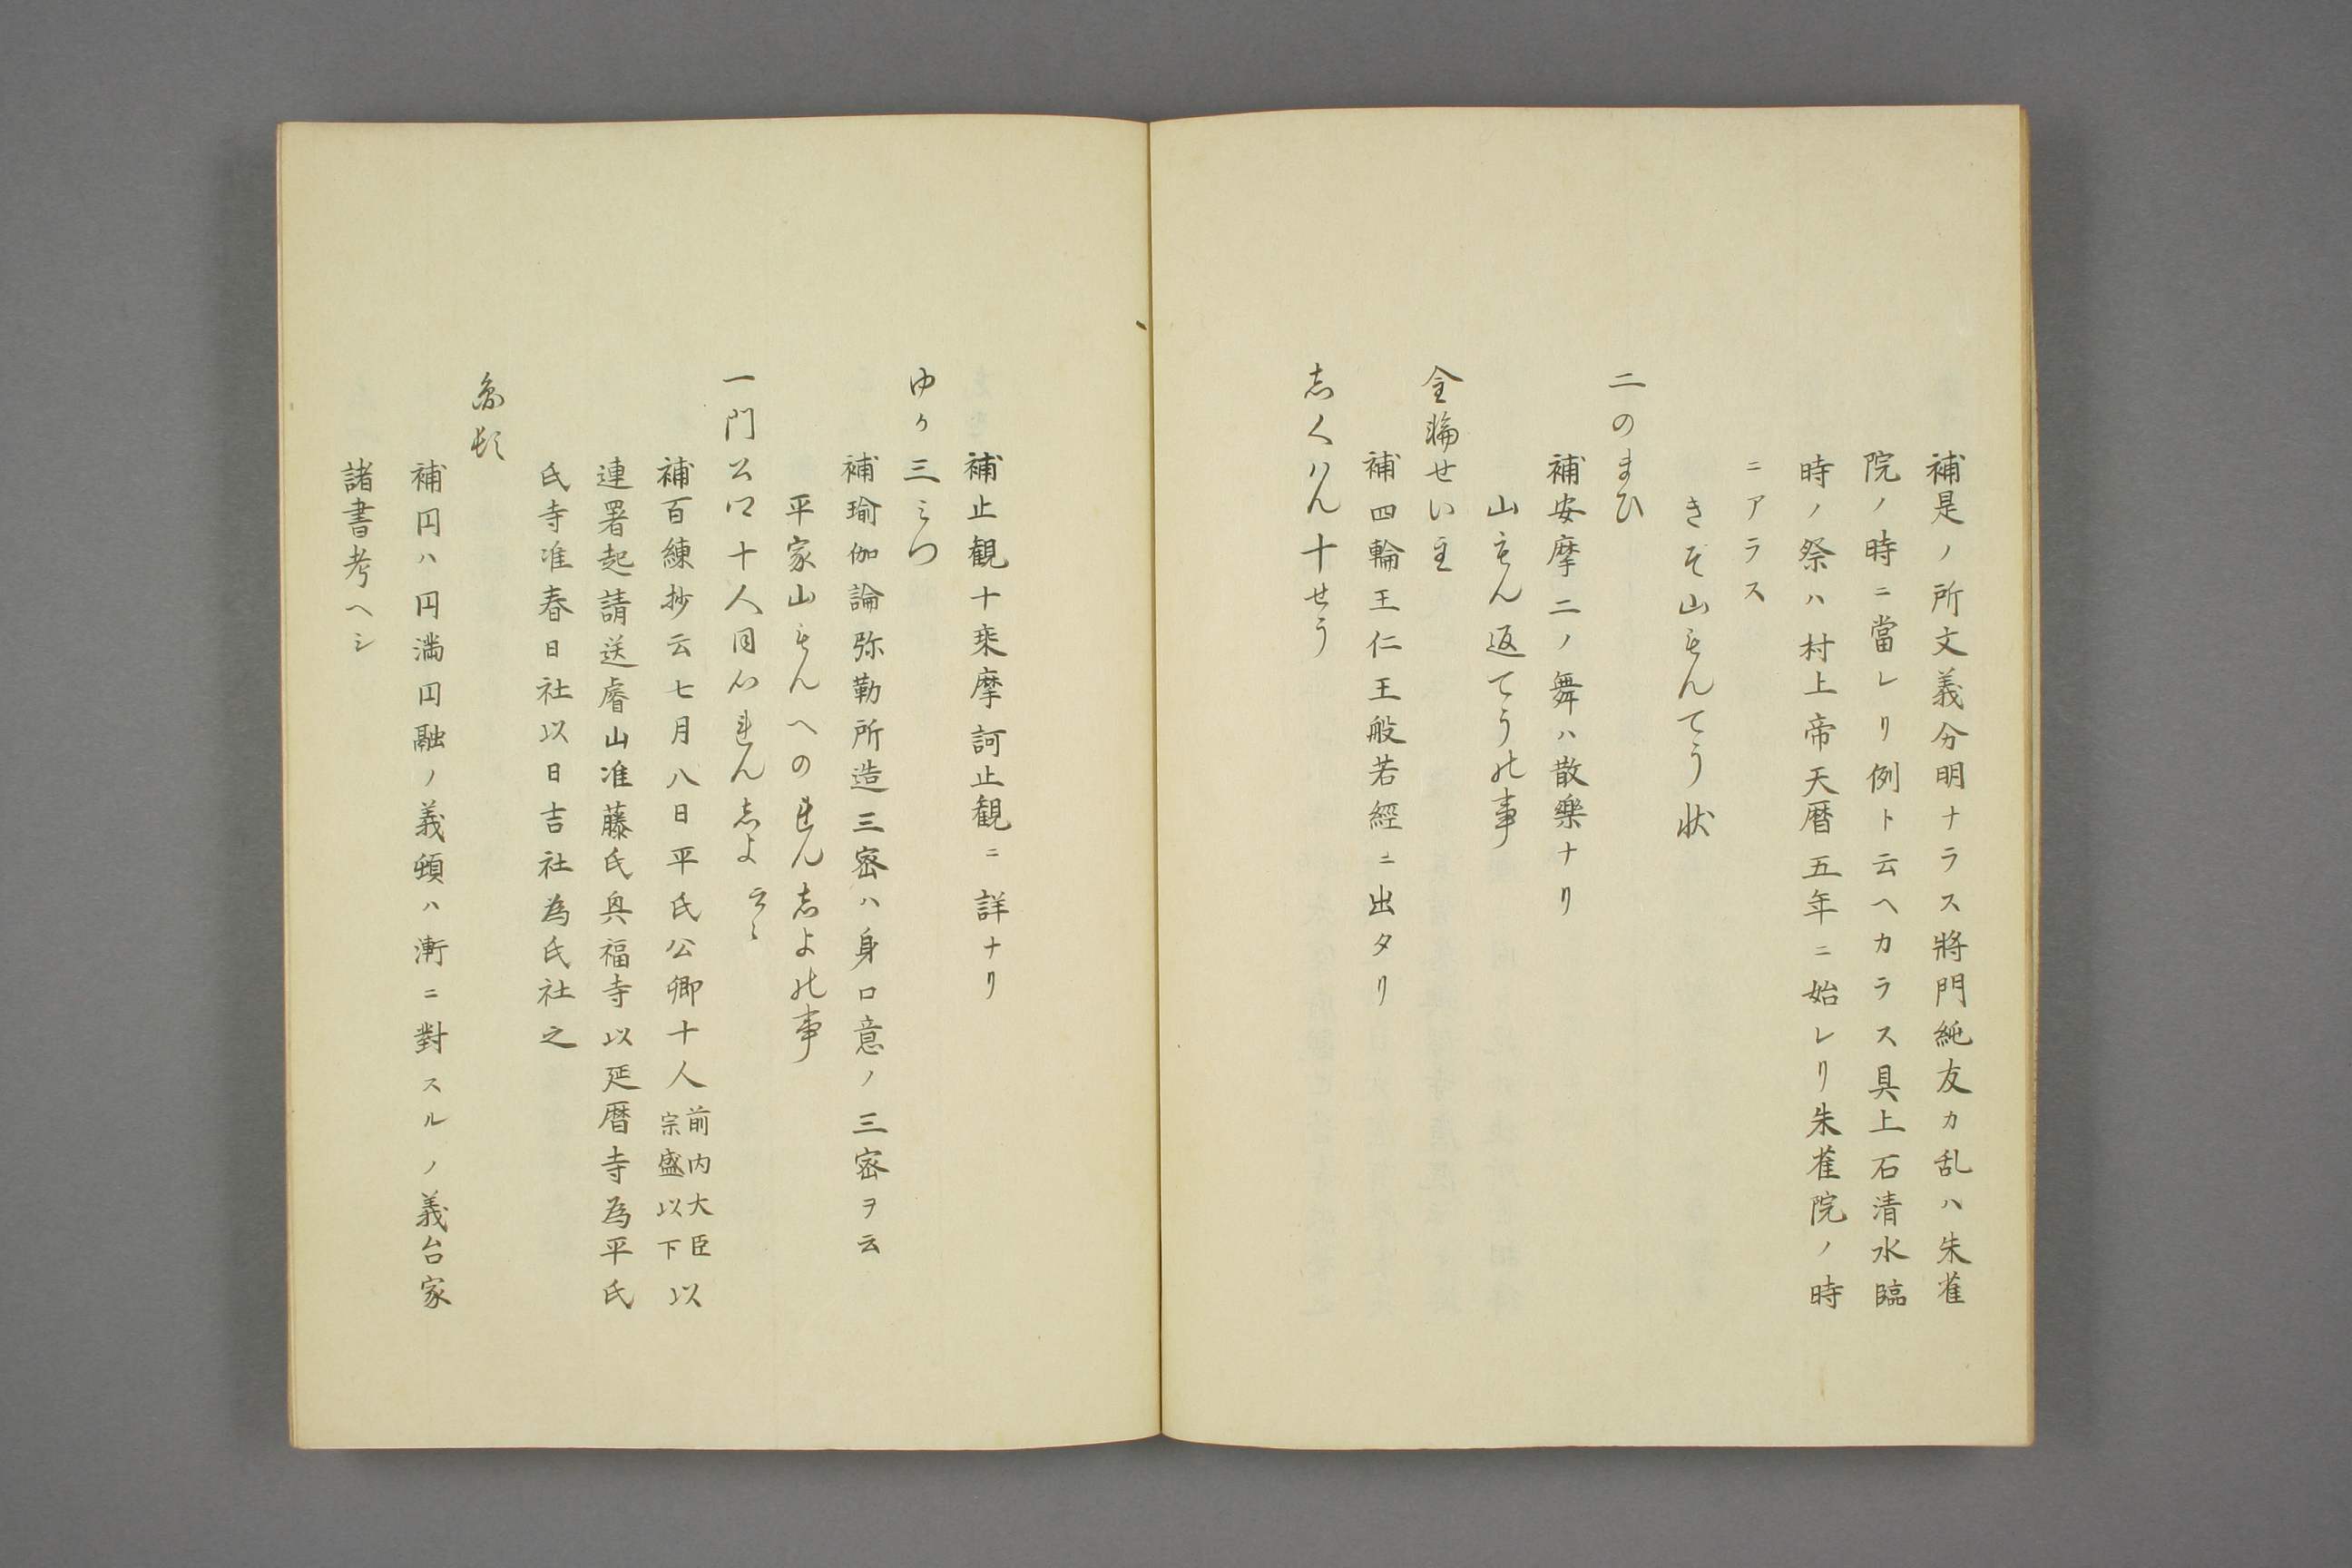 補是ノ所文義分明ナラス將門純友カ乱ハ朱雀
院ノ時ニ當レリ例ト云ヘカラス具上石清水臨
時ノ祭ハ村上帝天暦五年ニ始レリ朱雀院ノ時
ニアラス
きそ山もんてう状
二のまひ
補安摩二ノ舞ハ散樂ナリ
山もん返てうの事
金輪せい王
補四輪王仁王般若經ニ出タリ
しくわん十せう
補止観十乗摩訶止観ニ詳ナリ
ゆか三みつ
補瑜伽論弥勒所造三密ハ身口意ノ三密ヲ云
平家山もんへのれんしよの事
一門公口十人同心れんしよ云々
補百練抄云七月八日平氏公卿十人前内大臣宗盛以下以
連署起請送睿山准藤氏興福寺以延暦寺為平氏
氏寺准春日社以日吉社為氏社之
補円ハ円満円融ノ義頓ハ漸ニ對スルノ義台家
諸書考ヘシ